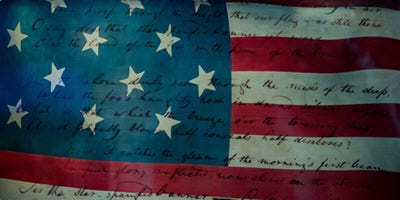 through the night that our flag was still there
O say does that star spangled banner yet wave
O'er the land of the in the home of the
shore dimly seen through the mists of the deep,
Where the foe's haughty host in dread
that which the breeze o'er the towering steep,
As it fitfully blows half conceals half discloses?
it catches the gleam of the morning's first beam
glory reflected now shines in the
'Tis the star-spangled banner O